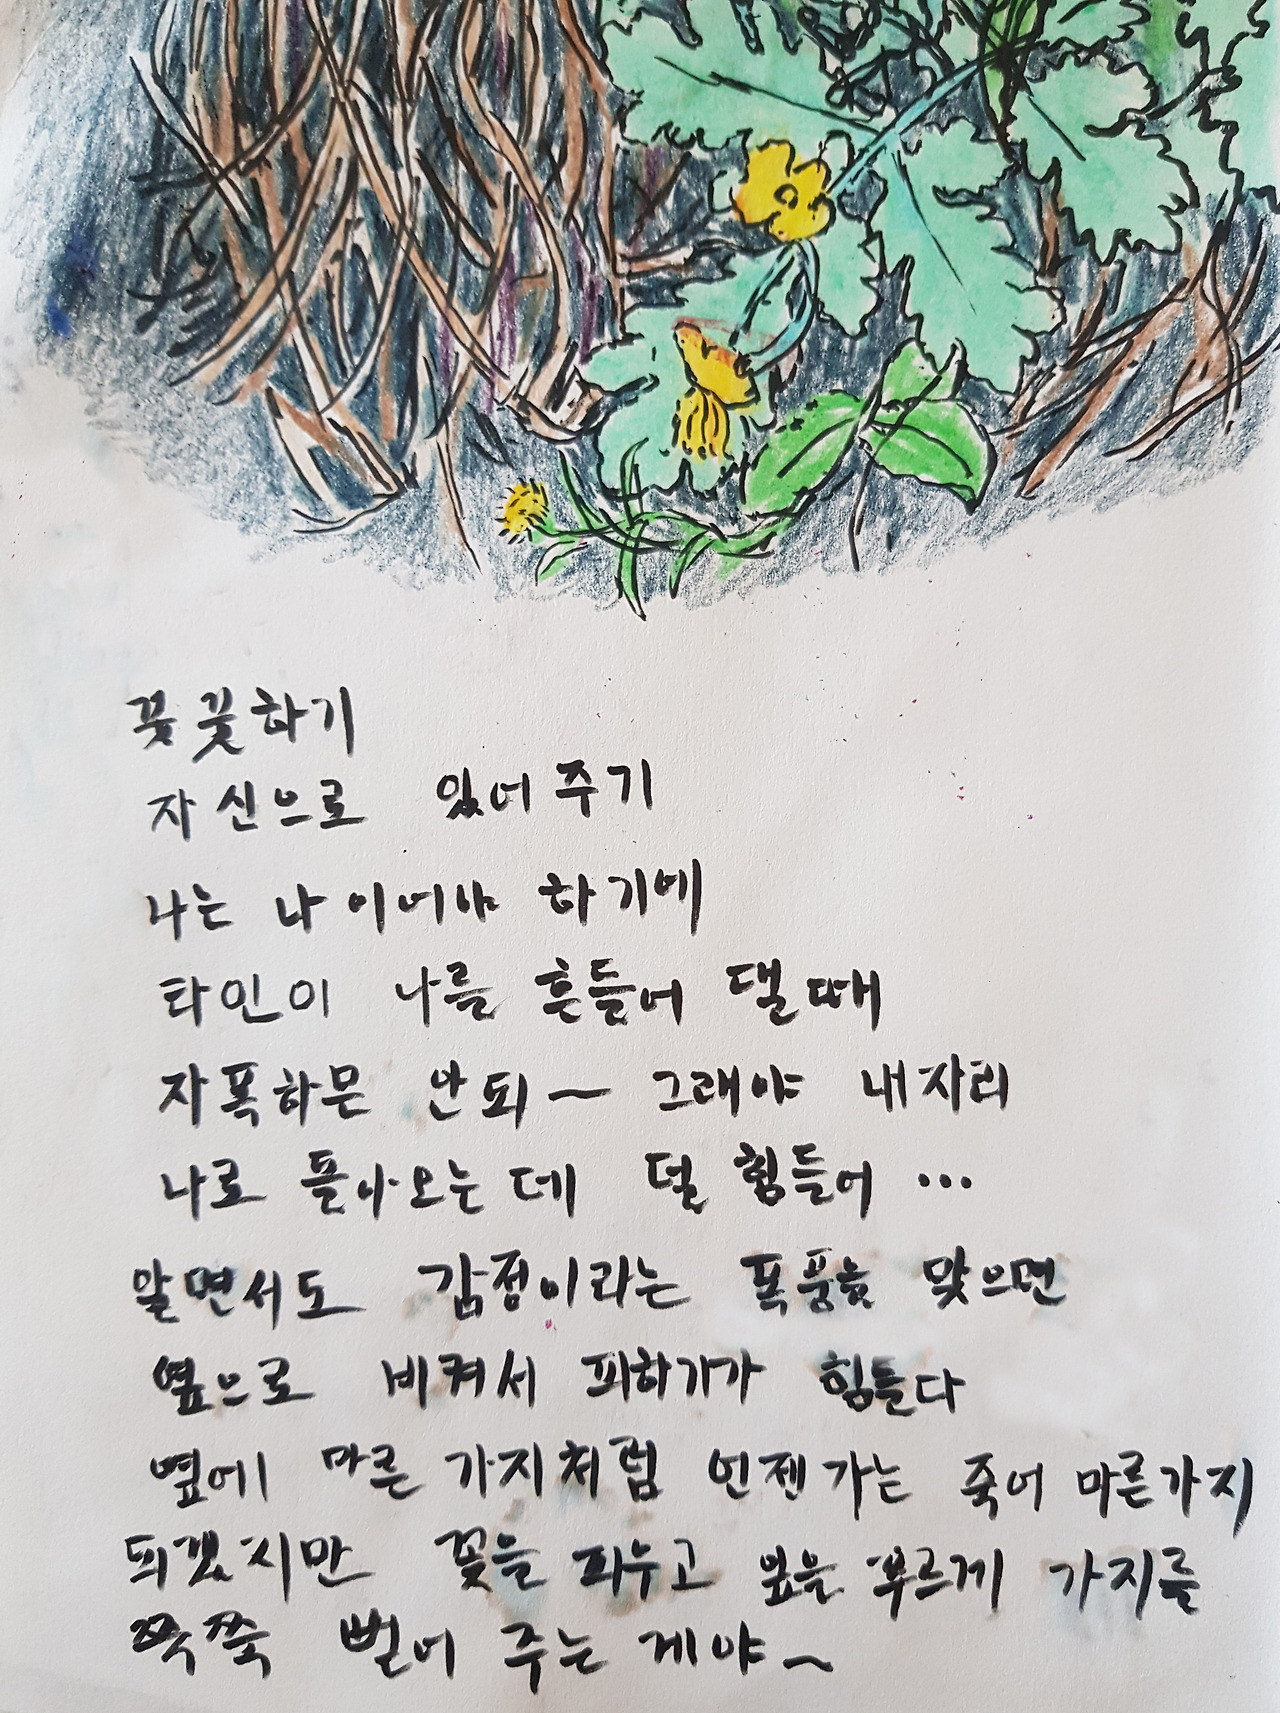 꽃꽃하기
자신으로 있어주기
나는 나이어야 하기에
타인이 나를 흔들어 댈때
자폭하믄 안되~ 그래야 내자리
나로 돌아오는데 덜 힘들어 ...
알면서도 감정이라는 폭풍을 맞으면
옆으로 비켜서 피하기가 힘들다
옆에 마른 가지처럼 언젠가는 죽어 마른가지
되겠지만 꽃을 피우고 잎을 푸르게 가지를
쭉쭉 뻗어 주는 게야~